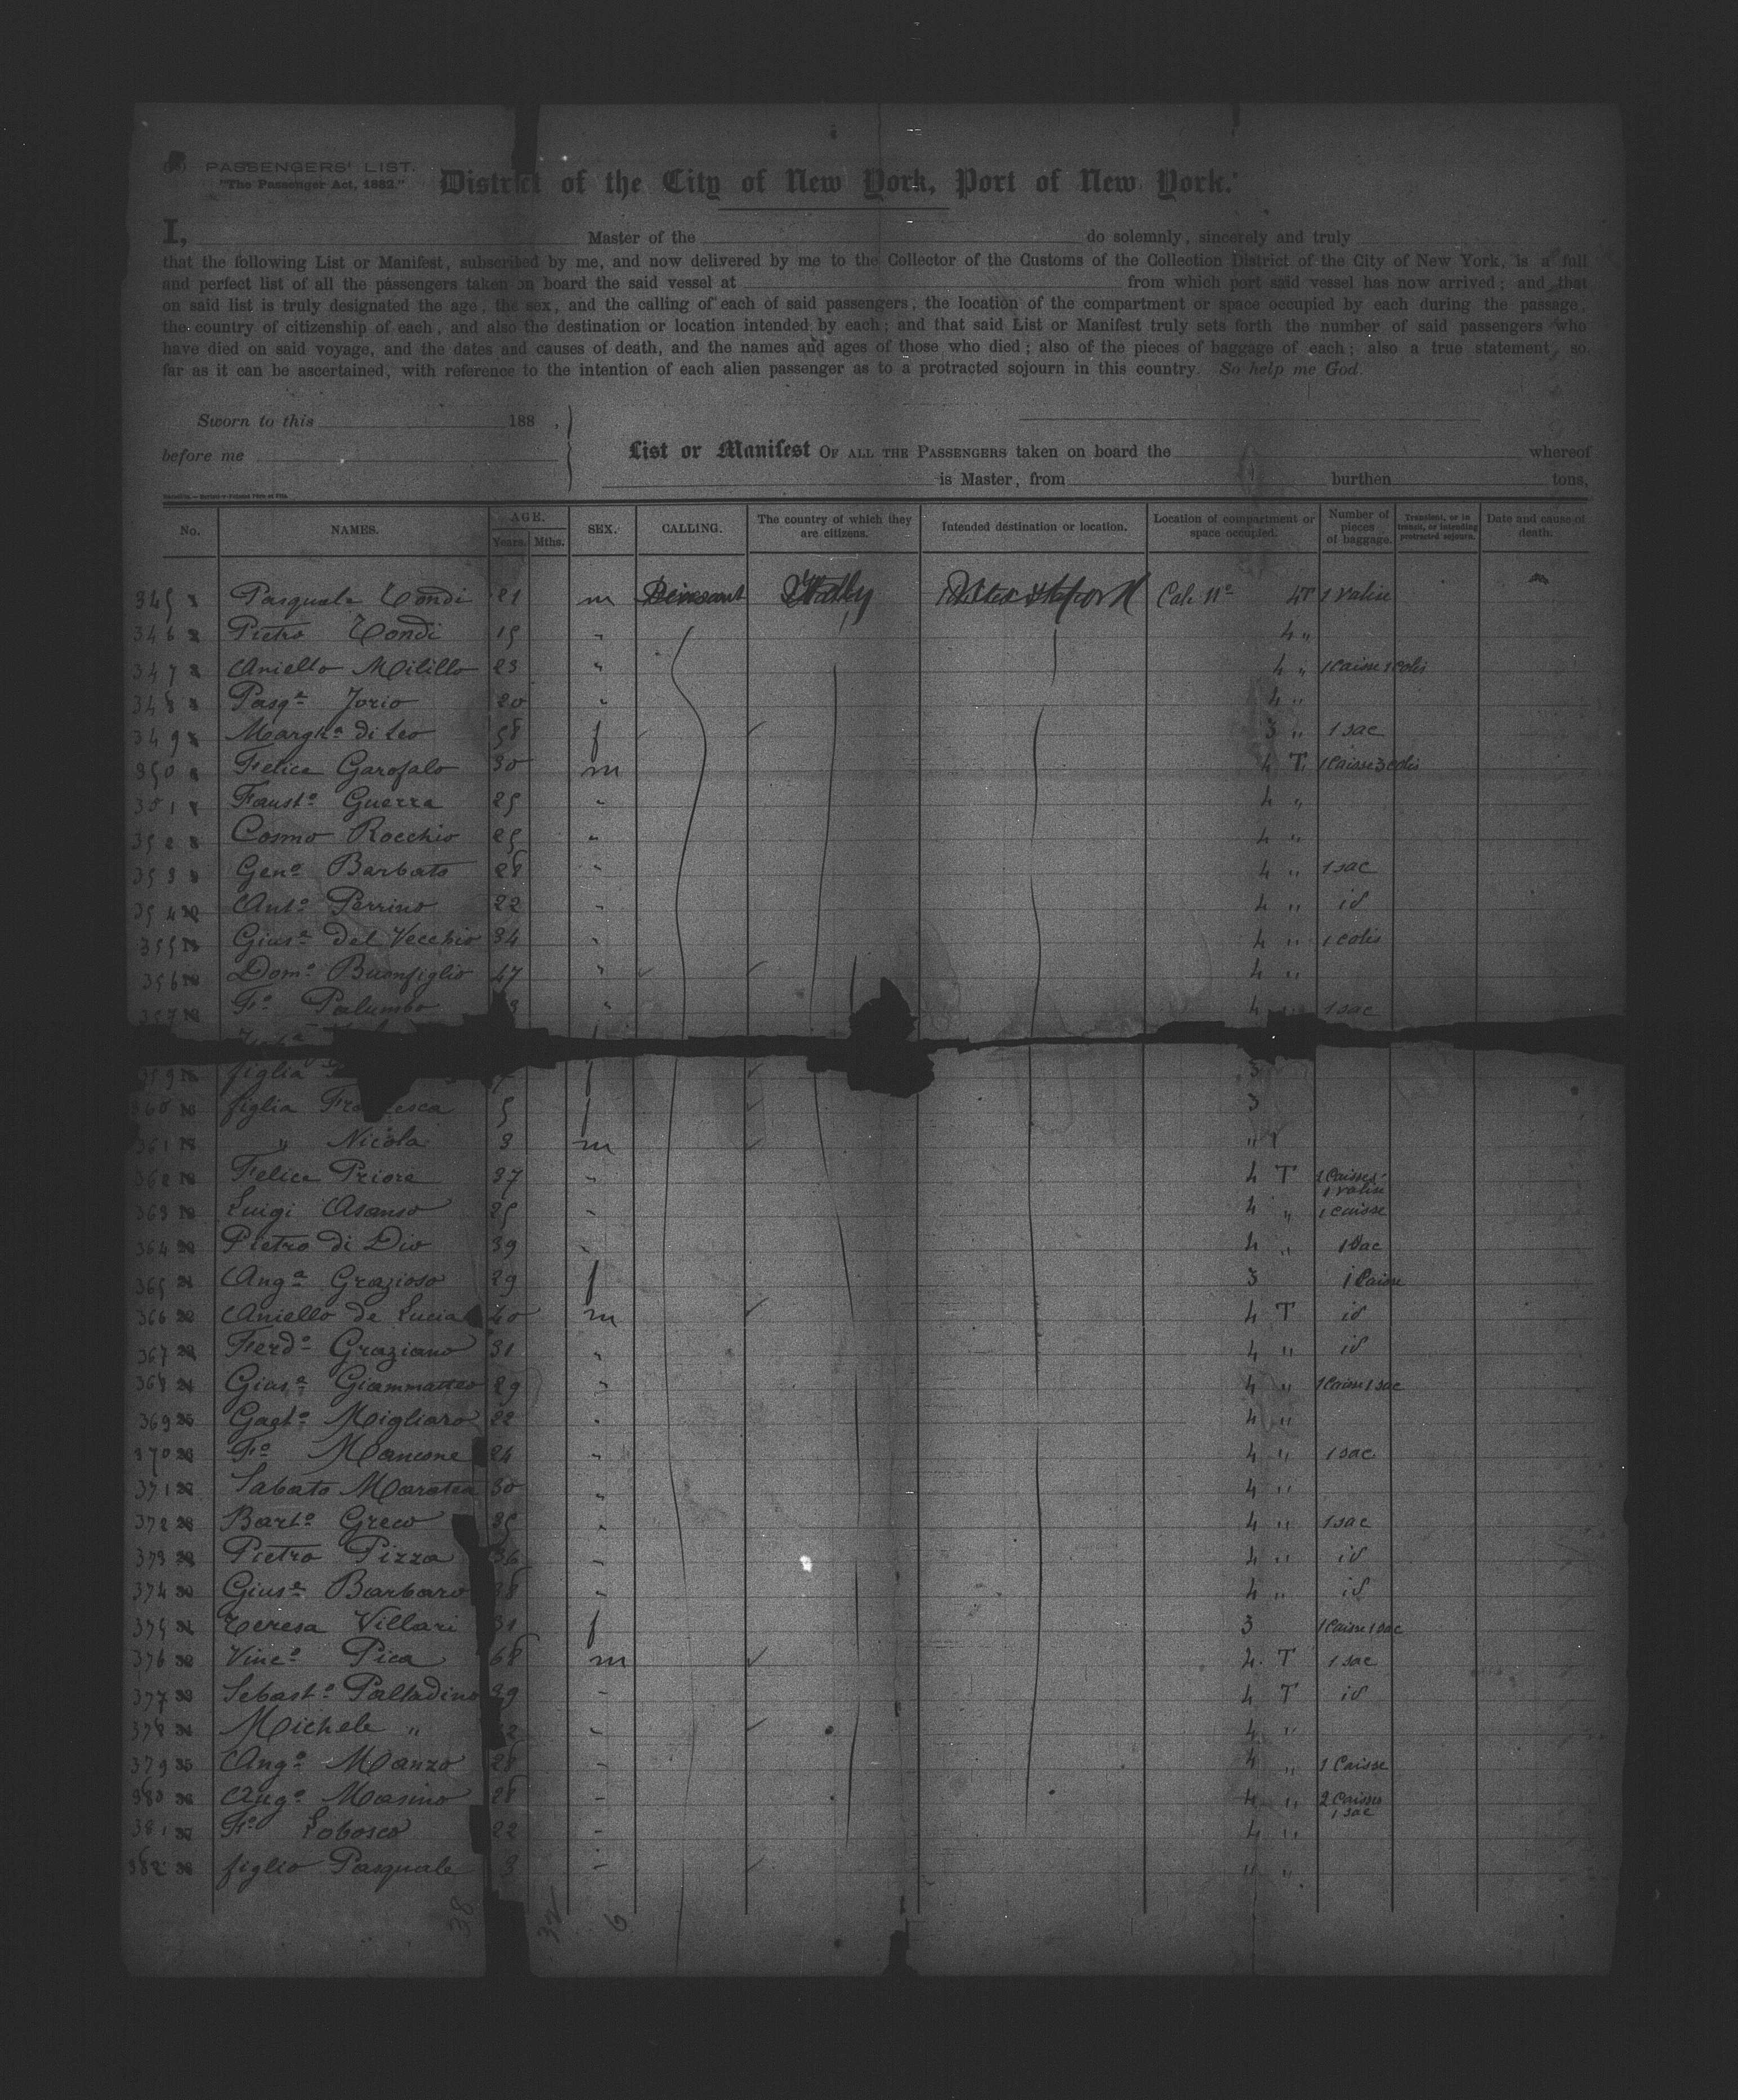 PASSENGERS' LIST.
"The Passenger Act, 1882."
District of the City of New York, Port of New York.
I, Master of the do solemnly, sincerely and truly
that the following List or Manifest, subscribed by me, and now delivered by me to the Collector of the Customs of the Collection District of the City of New York, is a full
and perfect list of all the passengers taken on board the said vessel at from which port said vessel has now arrived; and that
on said list is truly designated the age, the sex, and the calling of each of said passengers, the location of the compartment or space occupied by each during the passage,
the country of citizenship of each, and also the destination or location intended by each; and that said List or Manifest truly sets forth the number of said passengers who
have died on said voyage, and the dates and causes of death, and the names and ages of those who died; also of the pieces of baggage of each; also a true statement, so
far as it can be ascertained, with reference to the intention of each alien passenger as to a protracted sojourn in this country. So help me God.
Sworn to this 188 ,
before me
List or Manifest OF ALL THE PASSENGERS taken on board the whereof
is Master, from burthen tons,
No. NAMES. AGE. Years. Mths. SEX. CALLING. The country of which they are citizens. Intended destination or location. Location of compartment or space occupied. Number of pieces of baggage. Transient, or in transit, or intending protracted sojourn. Date and cause of death.
345 Pasquale Condi 21 m 4T 1 valise
346 Pietro Condi 15 " 4 "
347 Aniello Milillo 23 " 4 " 1 caisse 1 colis
348 Pasqe Jorio 20 " 4 "
349 Margha di Leo 58 f 3 " 1 sac
350 Felice Garofalo 30 m 4 T 1 caisse 3 colis
351 Fausto Guerra 25 " 4 "
352 Cosmo Rocchio 25 " 4 "
353 Geno Barbato 28 " 4 " 1 sac
354 Anto Perrino 22 " 4 " id
355 Giuse del Vecchio 34 " 4 " 1 colis
356 Domo Buonfiglio 47 " 4 "
357 Fo Palumbo " 4 " 1 sac
359 figlia f 3
360 figlia Francesca 5 f 3
361 " Nicola 3 m "
362 Felice Priore 37 " 4 T 1 valise
363 Luigi Asanso 25 " 4 " 1 caisse
364 Pietro di Dio 39 " 4 " 1 sac
365 Anga Grazioso 29 f 3 1 caisse
366 Aniello de Lucia 40 m 4 T id
367 Ferdo Graziano 31 " 4 " id
368 Giuse Giammatteo 29 " 4 " 1 caisse 1 sac
369 Gaeto Migliaro 22 " 4 "
370 Fo Mancone 24 " 4 " 1 sac
371 Sabato Maratea 30 " 4 "
372 Barto Greco 35 " 4 " 1 sac
373 Pietro Pizza 36 " 4 " id
374 Giuse Barbaro 38 " 4 " id
375 Teresa Villari 31 f 3 1 caisse 1 sac
376 Vinco Pica 68 m 4 T 1 sac
377 Sebasto Palladino 29 " 4 T id
378 Michele " " 4 "
379 Ango Manzo 28 " 4 " 1 Caisse
380 Ango Masino 28 " 4 " 2 caisses 1 sac
381 Fo Lobosco 22 " 4 "
382 figlio Pasquale 3 " " "
38 32 6